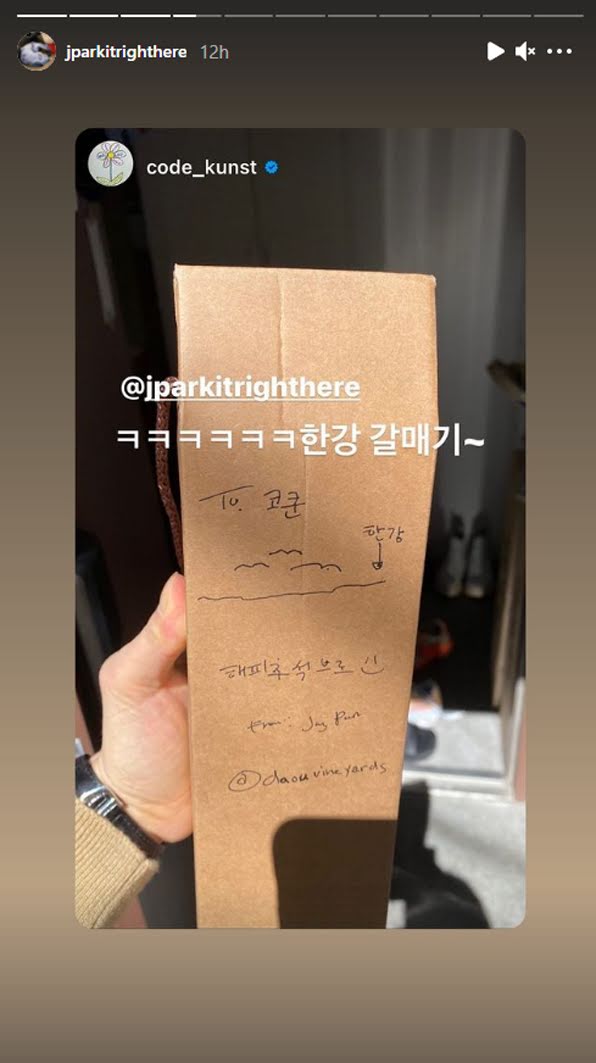 jparkitrighthere 12h
code_kunst
@jparkitrighthere
ㅋㅋㅋㅋㅋㅋㅋ한강 갈매기~
To. 코쿤
한강
해피추석브로 :)
from: Jay Park
@daouvineyards